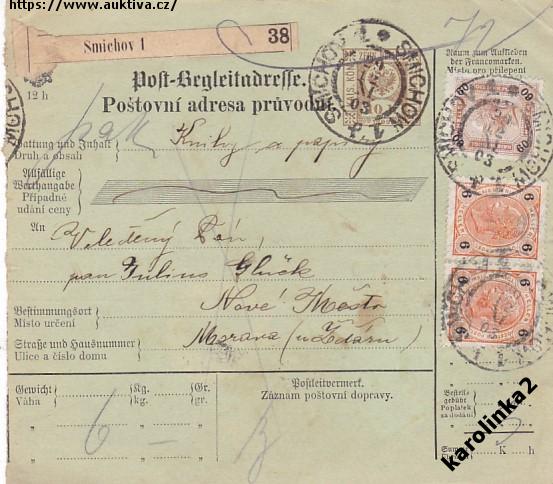 https://www.auktiva.cz/
Smichov 1 38
12 h
Post-Begleitadresse.
Poštovní adresa průvodní.
SMICHOV 1 SMICHOW 1
Raum zum Aufkleben
der Francomarken.
Místo pro přilepení
Gattung und Inhalt
Druh a obsah
Knihy a papíry
Allfällige
Werthangabe
Případné
udání ceny
An
Veleděný Pán,
pan Julius Glück
Nové Město
Bestimmungsort
Místo určení
Morava (u Žďáru)
Straße und Hausnummer
Ulice a číslo domu
60 60
6 6
6 6
Gewicht Kg. Gr.
Váha kg. gr.
6 –
Postleitvermerk.
Záznam poštovní dopravy.
Bestell-
gebühr
Poplatek
za dodání
K h
karolinka2